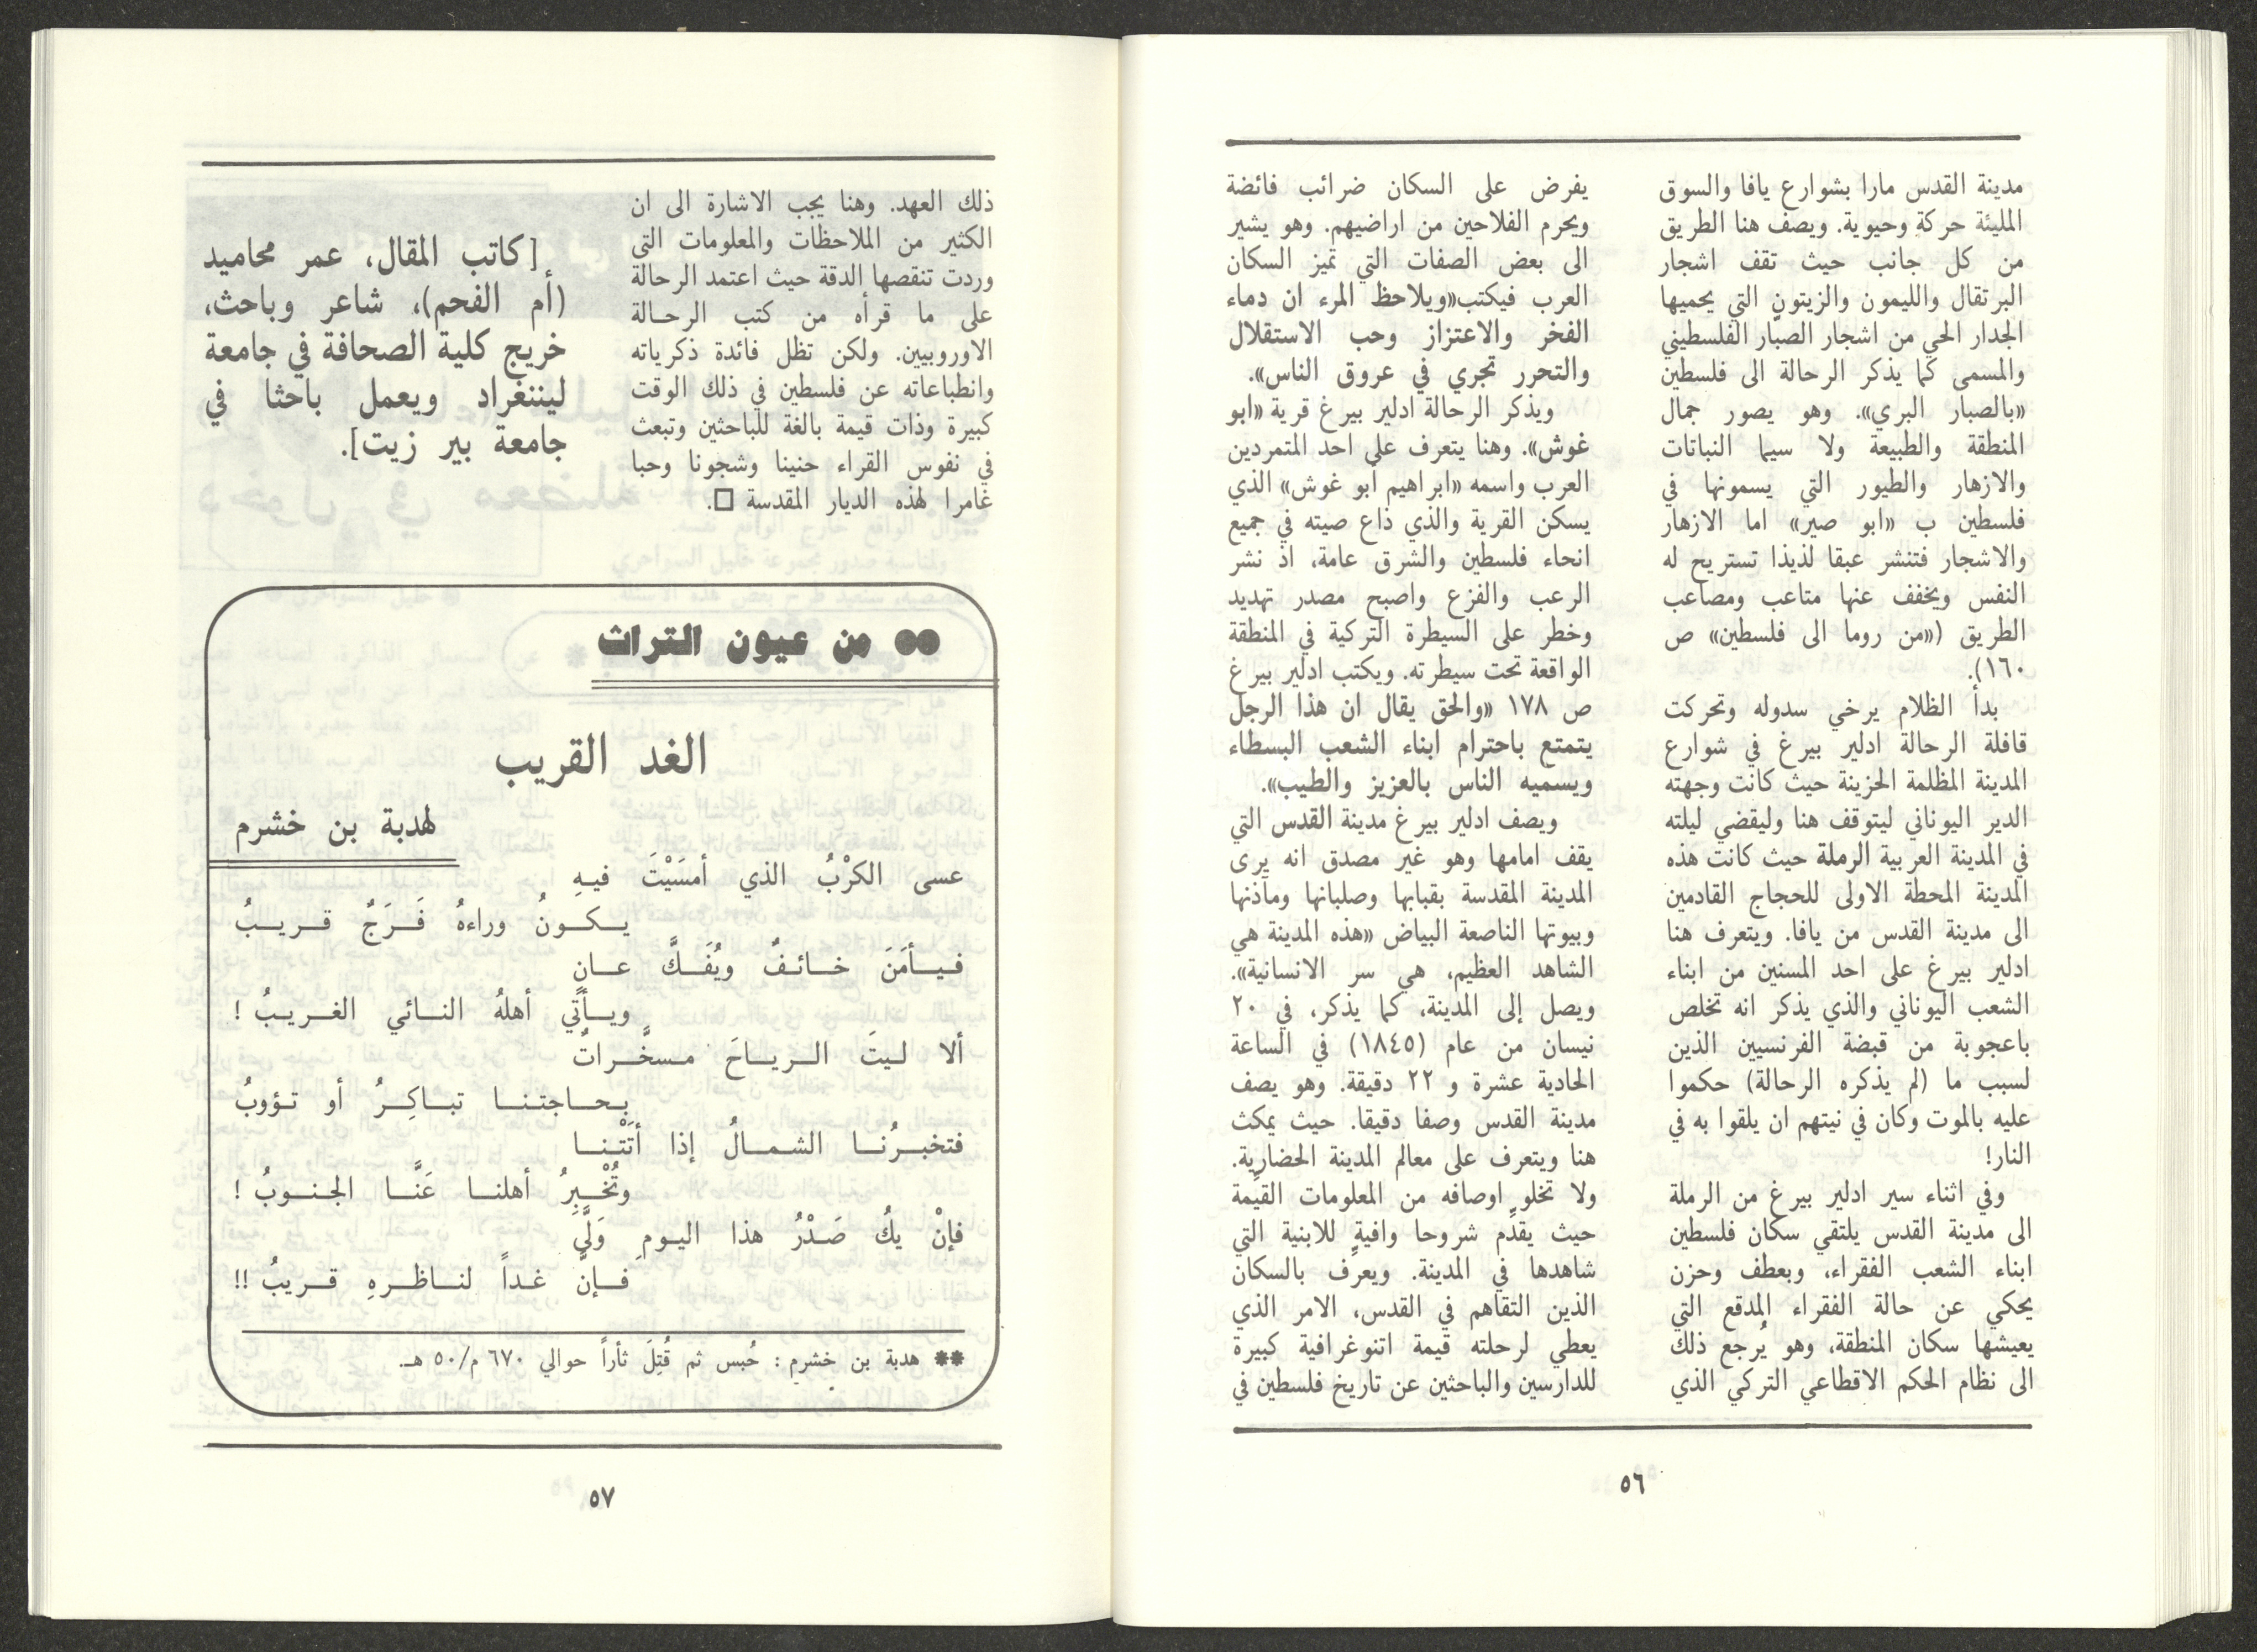 مدينة القدس مارا بشوارع يافا والسوق
المليئة حركة وحيوية. ويصف هنا الطريق
من كل جانب حيث تقف اشجار
البرتقال والليمون والزيتون التي يحميها
الجدار الحي من اشجار الصبّار الفلسطيني
والمسمى كما يذكر الرحالة الى فلسطين
«بالصبار البري». وهو يصور جمال
المنطقة والطبيعة ولا سيما النباتات
والازهار والطيور التي يسمونها في
فلسطين ب «ابو صير» اما الازهار
والاشجار فتنشر عبقا لذيذا تستريح له
النفس ويخفف عنها متاعب ومصاعب
الطريق («من روما الى فلسطين» ص
١٦٠).
بدأ الظلام يرخي سدوله وتحركت
قافلة الرحالة ادلير بيرغ في شوارع
المدينة المظلمة الحزينة حيث كانت وجهته
الدير اليوناني ليتوقف هنا وليقضي ليلته
في المدينة العربية الرملة حيث كانت هذه
المدينة المحطة الاولى للحجاج القادمين
الى مدينة القدس من يافا. ويتعرف هنا
ادلير بيرغ على احد المسنين من ابناء
الشعب اليوناني والذي يذكر انه تخلص
باعجوبة من قبضة الفرنسيين الذين
لسبب ما (لم يذكره الرحالة) حكموا
عليه بالموت وكان في نيتهم ان يلقوا به في
النار!
وفي اثناء سير ادلير بيرغ من الرملة
الى مدينة القدس يلتقي سكان فلسطين
ابناء الشعب الفقراء، وبعطف وحزن
يحكي عن حالة الفقراء المدقع التي
يعيشها سكان المنطقة، وهو يُرجع ذلك
الى نظام الحكم الاقطاعي التركي الذي
يفرض على السكان ضرائب فائضة
ويحرم الفلاحين من اراضيهم. وهو يشير
الى بعض الصفات التي تميز السكان
العرب فيكتب«ويلاحظ المرء ان دماء
الفخر والاعتزاز وحب الاستقلال
والتحرر تجري في عروق الناس».
ويذكر الرحالة ادلير بيرغ قرية «ابو
غوش». وهنا يتعرف على احد المتمردين
العرب واسمه «ابراهيم أبو غوش» الذي
يسكن القرية والذي ذاع صيته في جميع
انحاء فلسطين والشرق عامة، اذ نشر
الرعب والفزع واصبح مصدر تهديد
وخطر على السيطرة التركية في المنطقة
الواقعة تحت سيطرته. ويكتب ادلير بيرغ
ص ١٧٨ «والحق يقال ان هذا الرجل
يتمتع باحترام ابناء الشعب البسطاء
ويسميه الناس بالعزيز والطيب».
ويصف ادلير بيرغ مدينة القدس التي
يقف امامها وهو غير مصدق انه يرى
المدينة المقدسة بقبابها وصلبانها ومآذنها
وبيوتها الناصعة البياض «هذه المدينة هي
الشاهد العظيم، هي سر الانسانية».
ويصل إلى المدينة، كما يذكر، في ٢٠
نيسان من عام (١٨٤٥) في الساعة
الحادية عشرة و ٢٢ دقيقة. وهو يصف
مدينة القدس وصفا دقيقا. حيث يمكث
هنا ويتعرف على معالم المدينة الحضارية.
ولا تخلو اوصافه من المعلومات القيّمة
حيث يقدّم شروحا وافية للابنية التي
شاهدها في المدينة. ويعرّف بالسكان
الذين التقاهم في القدس، الامر الذي
يعطي لرحلته قيمة اتنوغرافية كبيرة
للدارسين والباحثين عن تاريخ فلسطين في
٥٦
ذلك العهد. وهنا يجب الاشارة الى ان
الكثير من الملاحظات والمعلومات التي
وردت تنقصها الدقة حيث اعتمد الرحالة
على ما قرأه من كتب الرحالة
الاوروبيين. ولكن تظل فائدة ذكرياته
وانطباعاته عن فلسطين في ذلك الوقت
كبيرة وذات قيمة بالغة للباحثين وتبعث
في نفوس القراء حنينا وشجونا وحبا
غامرا لهذه الديار المقدسة □.
[كاتب المقال، عمر محاميد
(أم الفحم)، شاعر وباحث،
خريج كلية الصحافة في جامعة
ليننغراد ويعمل باحثا في
جامعة بير زيت].
●● من عيون التراث
الغد القريب
لهدبة بن خشرم
عسى الكرْبُ الذي أمسَيْتَ فيهِ
يكونُ وراءهُ فَرَجٌ قريبُ
فيأمَنَ خائفٌ ويُفَكَّ عانٍ
ويأتي أهلهُ النائي الغريبُ !
ألا ليتَ الرياحَ مسخَّراتٌ
بحاجتنا تباكِرُ أو تؤوبُ
فتخبرُنا الشمالُ إذا أتَتْنا
وتُخْبِرُ أهلنا عَنَّا الجنوبُ !
فإنْ يكُ صَدْرُ هذا اليومِ وَلَّى
فإنَّ غداً لناظرهِ قريبُ !!
** هدبة بن خشرم : حُبس ثم قُتِلَ ثأراً حوالي ٦٧٠ م/٥٠ هـ.
٥٧